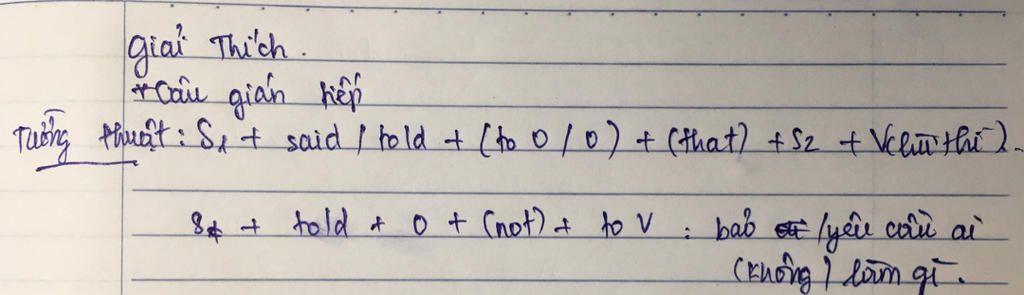 Giải Thích.
+ Câu gián tiếp
Tường thuật: S1 + said / told + (to O / O) + (that) + S2 + V(lùi thì).
S + told + O + (not) + to V : bảo /yêu cầu ai
(không) làm gì.